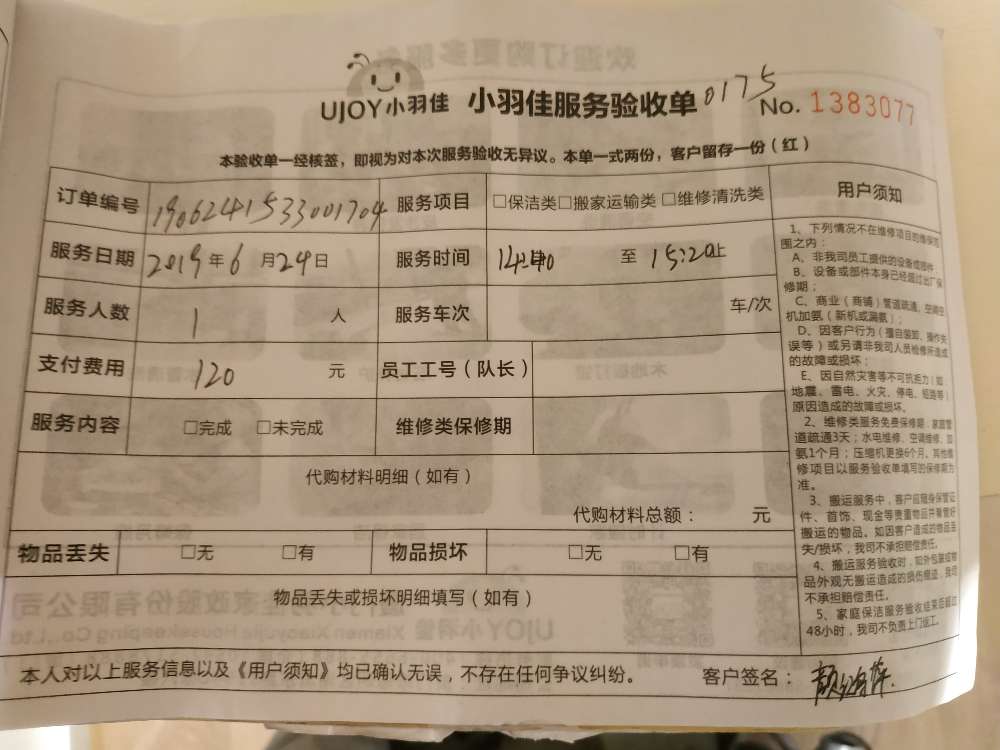 UJOY小羽佳 小羽佳服务验收单 0175 No. 1383077
本验收单一经核签，即视为对本次服务验收无异议。本单一式两份，客户留存一份（红）
订单编号 1906241533001704 服务项目 □保洁类□搬家运输类 □维修清洗类
服务日期 2019年6月24日 服务时间 至 15:20止
服务人数 1 人 服务车次 车/次
支付费用 120 元 员工工号（队长）
服务内容 □完成 □未完成 维修类保修期
代购材料明细（如有）
代购材料总额： 元
物品丢失 □无 □有 物品损坏 □无 □有
物品丢失或损坏明细填写（如有）
本人对以上服务信息以及《用户须知》均已确认无误，不存在任何争议纠纷。 客户签名：
用户须知
1、下列情况不在维修项目的维保范
围之内：
A、非我司员工提供的设备或部件
B、设备或部件本身已经超过出厂保
修期；
C、商业（商铺）管道疏通，空调空
机加氨（新机或漏氨）；
D、因客户行为（擅自装卸、操作失
误等）或另请非我司人员检修所造成
的故障或损坏；
E、因自然灾害等不可抗走力（如
地震、雷电、火灾、停电、短路等）
原因造成的故障或损坏。
2、维修类服务免费保修期，家庭管
道疏通3天；水电维修、空调维修、加
氨1个月；压缩机更换6个月。其他维
修项目以服务验收单填写的保修期为
准。
3、搬运服务中，客户应随身保管证
件、首饰、现金等贵重物品并看管好
搬运的物品。如因客户造成的物品丢
失/损坏，我司不承担赔偿责任。
4、搬运服务验收时，如外包装或物
品外观无搬运造成的损伤痕迹，我司
不承担赔偿责任。
5、家庭保洁服务验收结束后超过
48小时，我司不负责上门返工。